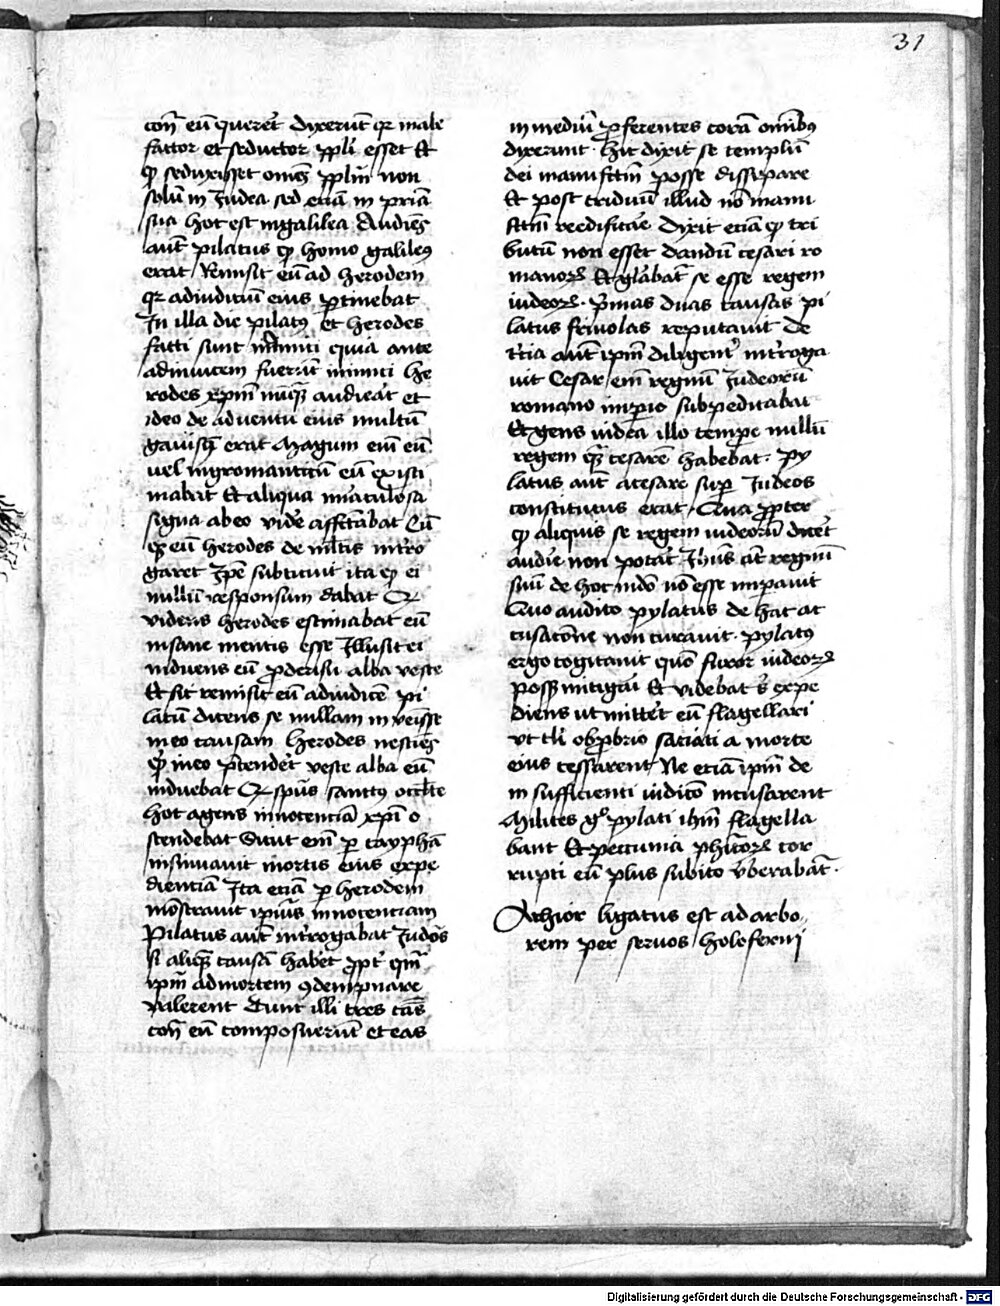 31
con̄ eū queret̉ dixerūt qr male
factor et seductor ppl̉i esset et
ꝙ seduxisset om̄es pplm̄ non
solū in Judea sed etiā in p̄riā
sua hoc est in galilea Audiēs
aut̄ pilatus ꝙ homo galile9
erat Remisit eū ad herodem
qr ad iudiciū eius ꝑtinebat
In illa die pilat9 et herodes
facti sunt amici quia ante
ad inuicem fuerūt inimici he
rodes xp̄m nūq̄ȝ audieāt et
ideo de aduentu eius multū
gauisꝰ erat Magum em̄ eū
uel nigromanticū eū existi
mabat Et aliqua miraculosa
signa ab eo videre affectabat Cū
ergo eū herodes de ml̉tis int̉ro
garet Ip̄e subticuit ita ꝙ ei
nullū responsum dabat Qd
videns herodes estimabat eū
insane mentis esse Illusit ei
induens eū ꝓ derisu alba veste
Et sic remisit eū ad iudicē pi
latū dicens se nullam inuenisse
in eo causam herodes nesciēs
ꝙ in eo p̄tendēt veste alba eū
induebat Qd sp̄us sanct9 occl̉te
hoc agens innocenciā xp̄i o
stendebat Sicut em̄ ꝑ caypham
insinuauit mortis eius expe
dienciā Ita etiā ꝑ herodem
mōstrauit ipsius innocenciam
Pilatus aut̄ int̉rogabat Judeos
si aliquā causā haberēt ꝓpt̉ quā
ip̄m ad mortem 9dempnare
valerent Tunc illi tres cās
con̄ eū composuerūt et eas
in mediū ꝓferentes corā om̄ib9
dixerunt · hic dixit se templū
dei manu fcm̄ posse dissipare
Et post triduū illud nō manu
fcm̄ reedificare Dixit etiā ꝙ tri
butū non esset dandū cesari ro
manoꝝ Et gl̉abat̄ se esse regem
iudeoꝝ · Pmas duas causas pi
latus friuolas reputauit De
tercia aut̄ ip̄m diligent̉ int̉roga
uit Cesar em̄ regnū Judeorū
romano imꝑio subpeditabat
Et gens iudea illo tempore nullū
regem q̄ȝ cesarē habebat · Py
latus aut̄ a cesare sup̉ Judeos
constitutus erat · Qua ꝓpter
ꝙ aliquis se regem iudeorū dicēt
audire non poterat Ihūs aūt regnū
suū de hoc mūdo nō esse impauit
Quo audito pylatus de hac ac
cusacōne non curauit · Pylat9
ergo cogitauit quō furor iudeoꝝ
posset mitigari Et videbat̉ s̄ expe
diens ut mittēt eū flagellari
vt tl̉i obꝓbrio saciati a morte
eius cessarent Ne etiam ip̄m de
in sufficienti iudicio incusarent
Milites gͦ pylati ihm̄ flagella
bant Et peccunia phĩoꝝ cor
rupti eū plus subito v̉berabāt ·
Achior ligatus est ad arbo
rem per seruos holoferni
Digitalisierung gefördert durch die Deutsche Forschungsgemeinschaft - DFG